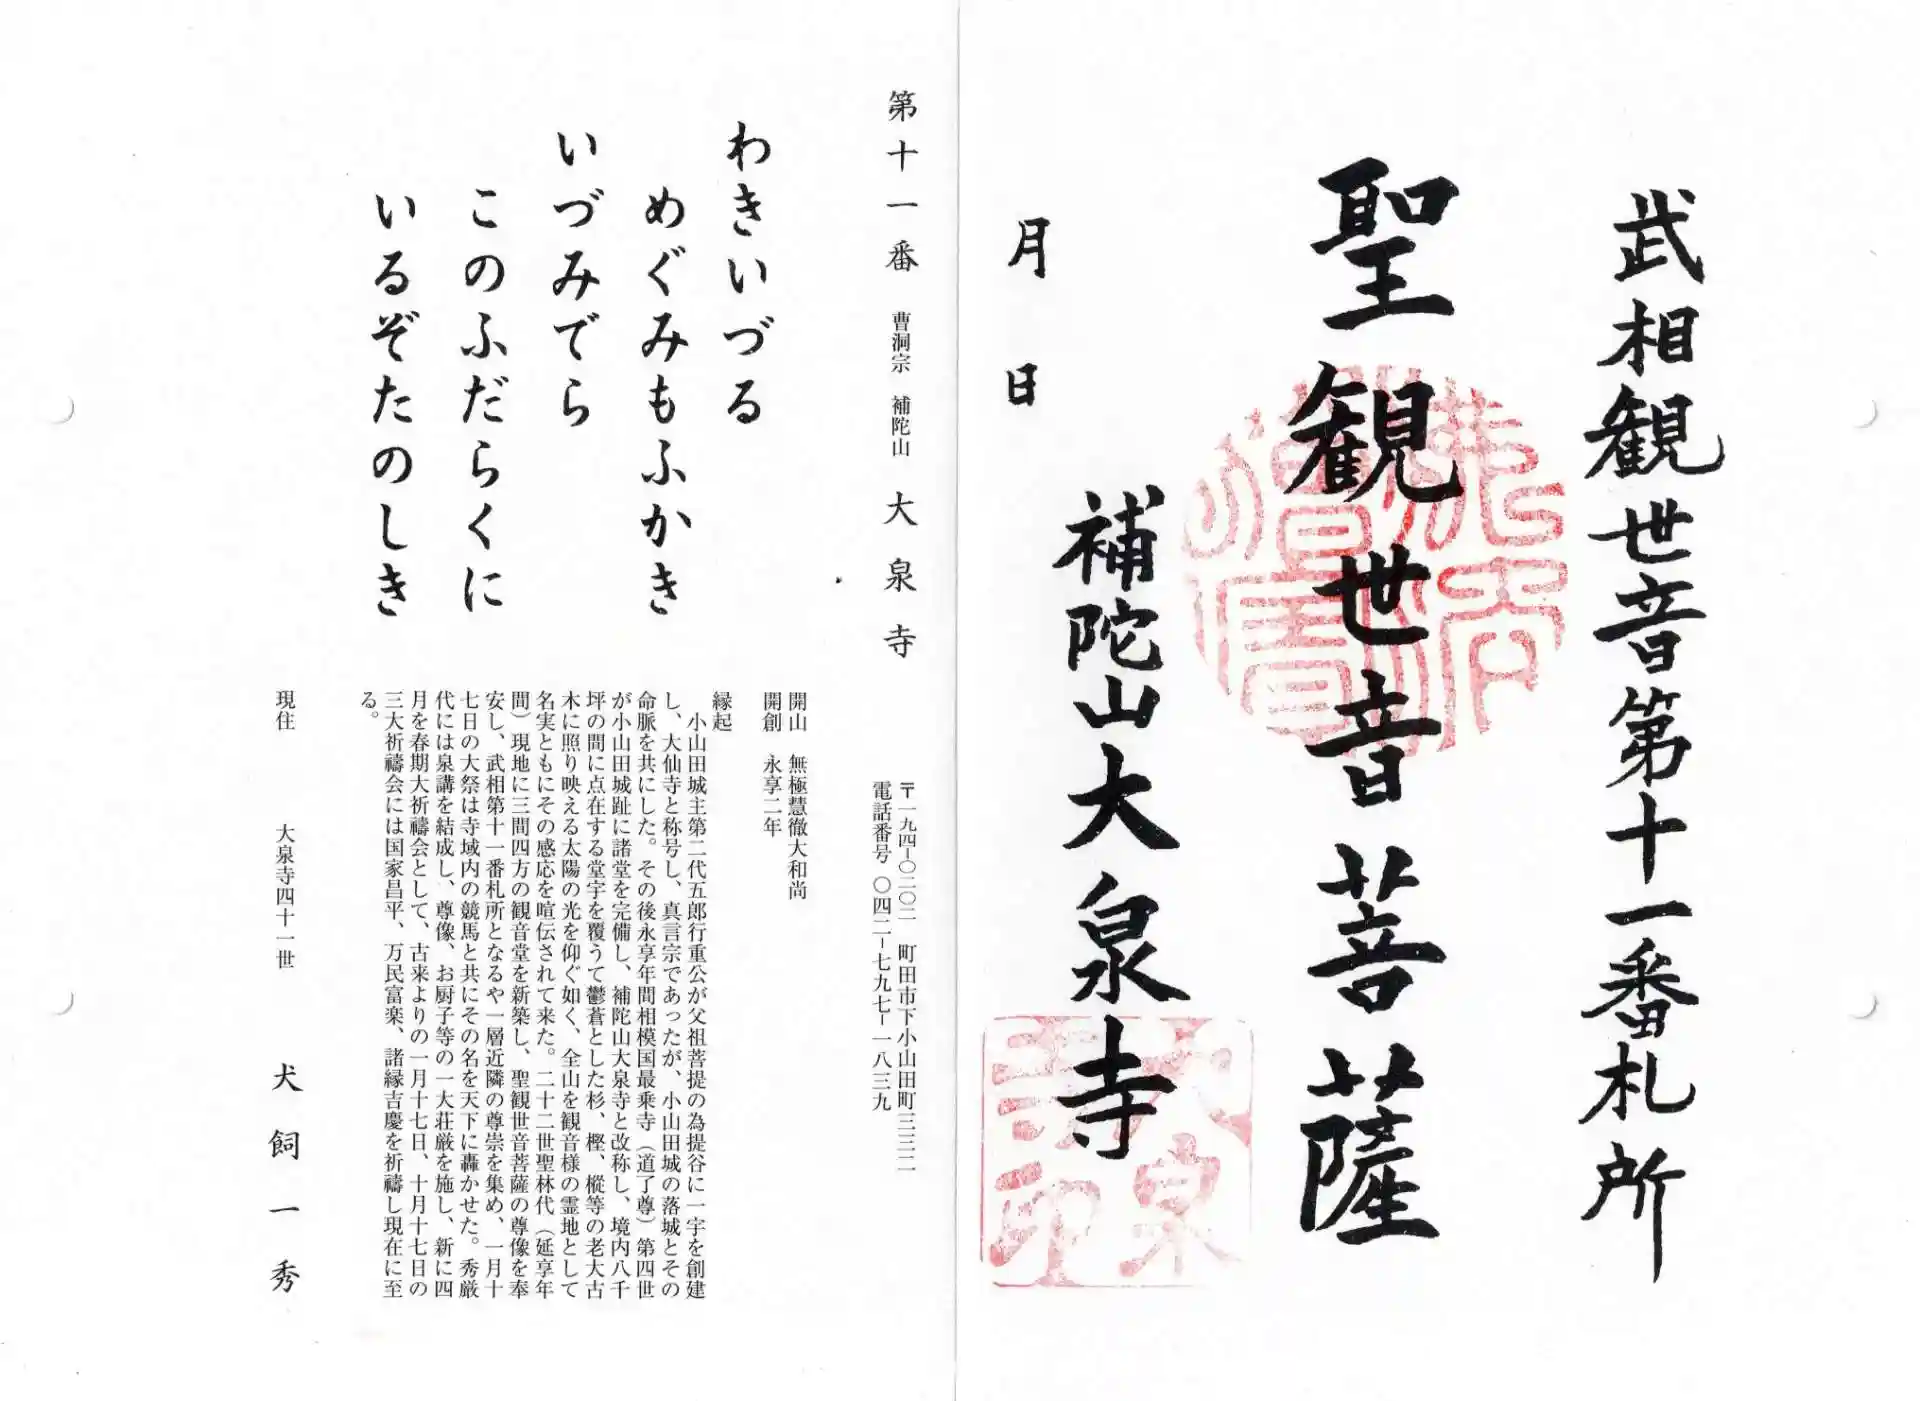 武相観世音第十一番札所
聖観世音菩薩
補陀山大泉寺
月　日
第十一番　曹洞宗　補陀山　大泉寺
〒一九四-〇二〇二　町田市下小山田町三三二二
電話番号　〇四二-七九七-一八三九
わきいづる
めぐみもふかき
いづみでら
このふだらくに
いるぞたのしき
開山　無極慧徹大和尚
開創　永享二年
縁起
小山田城主第二代五郎行重公が父祖菩提の為提谷に一宇を創建
し、大仙寺と称号し、真言宗であったが、小山田城の落城とその
命脈を共にした。その後永享年間相模国最乗寺（道了尊）第四世
が小山田城趾に諸堂を完備し、補陀山大泉寺と改称し、境内八千
坪の間に点在する堂宇を覆うて鬱蒼とした杉、樫、樅等の老大古
木に照り映える太陽の光を仰ぐ如く、全山を観音様の霊地として
名実ともにその感応を喧伝されて来た。二十二世聖林代（延享年
間）現地に三間四方の観音堂を新築し、聖観世音菩薩の尊像を奉
安し、武相第十一番札所となるや一層近隣の尊崇を集め、一月十
七日の大祭は寺域内の競馬と共にその名を天下に轟かせた。秀厳
代には泉講を結成し、尊像、お厨子等の一大荘厳を施し、新に四
月を春期大祈禱会として、古来よりの一月十七日、十月十七日の
三大祈禱会には国家昌平、万民富楽、諸縁吉慶を祈禱し現在に至
る。
現住　大泉寺四十一世　犬飼一秀